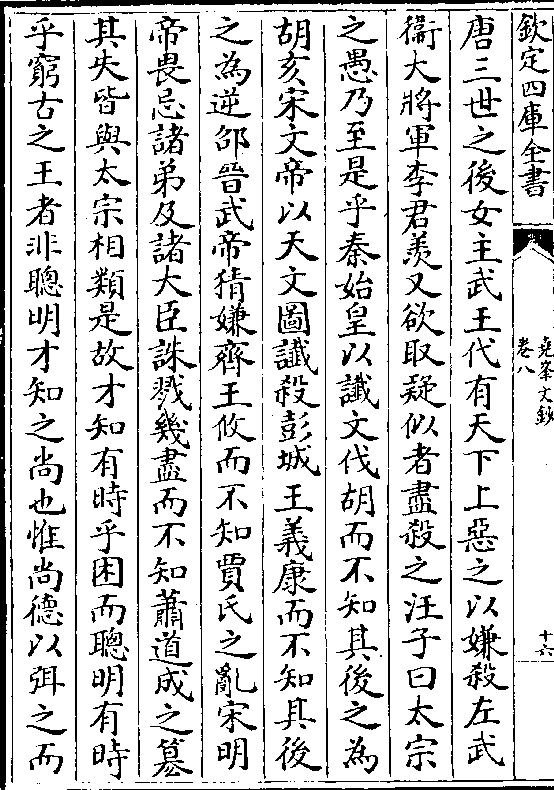 欽定四庫全書
堯峯文鈔
卷八
十六
唐三世之後女主武王代有天下上惡之以嫌殺左武
衞大將軍李君羨又欲取疑似者盡殺之汪子曰太宗
之愚乃至是乎秦始皇以讖文伐胡而不知其後之為
胡亥宋文帝以天文圖讖殺彭城王義康而不知其後
之為逆邵晉武帝猜嫌齊王攸而不知賈氏之亂宋明
帝畏忌諸弟及諸大臣誅戮幾盡而不知蕭道成之篡
其失皆與太宗相類是故才知有時乎困而聰明有時
乎窮古之王者非聰明才知之尚也惟尚德以弭之而